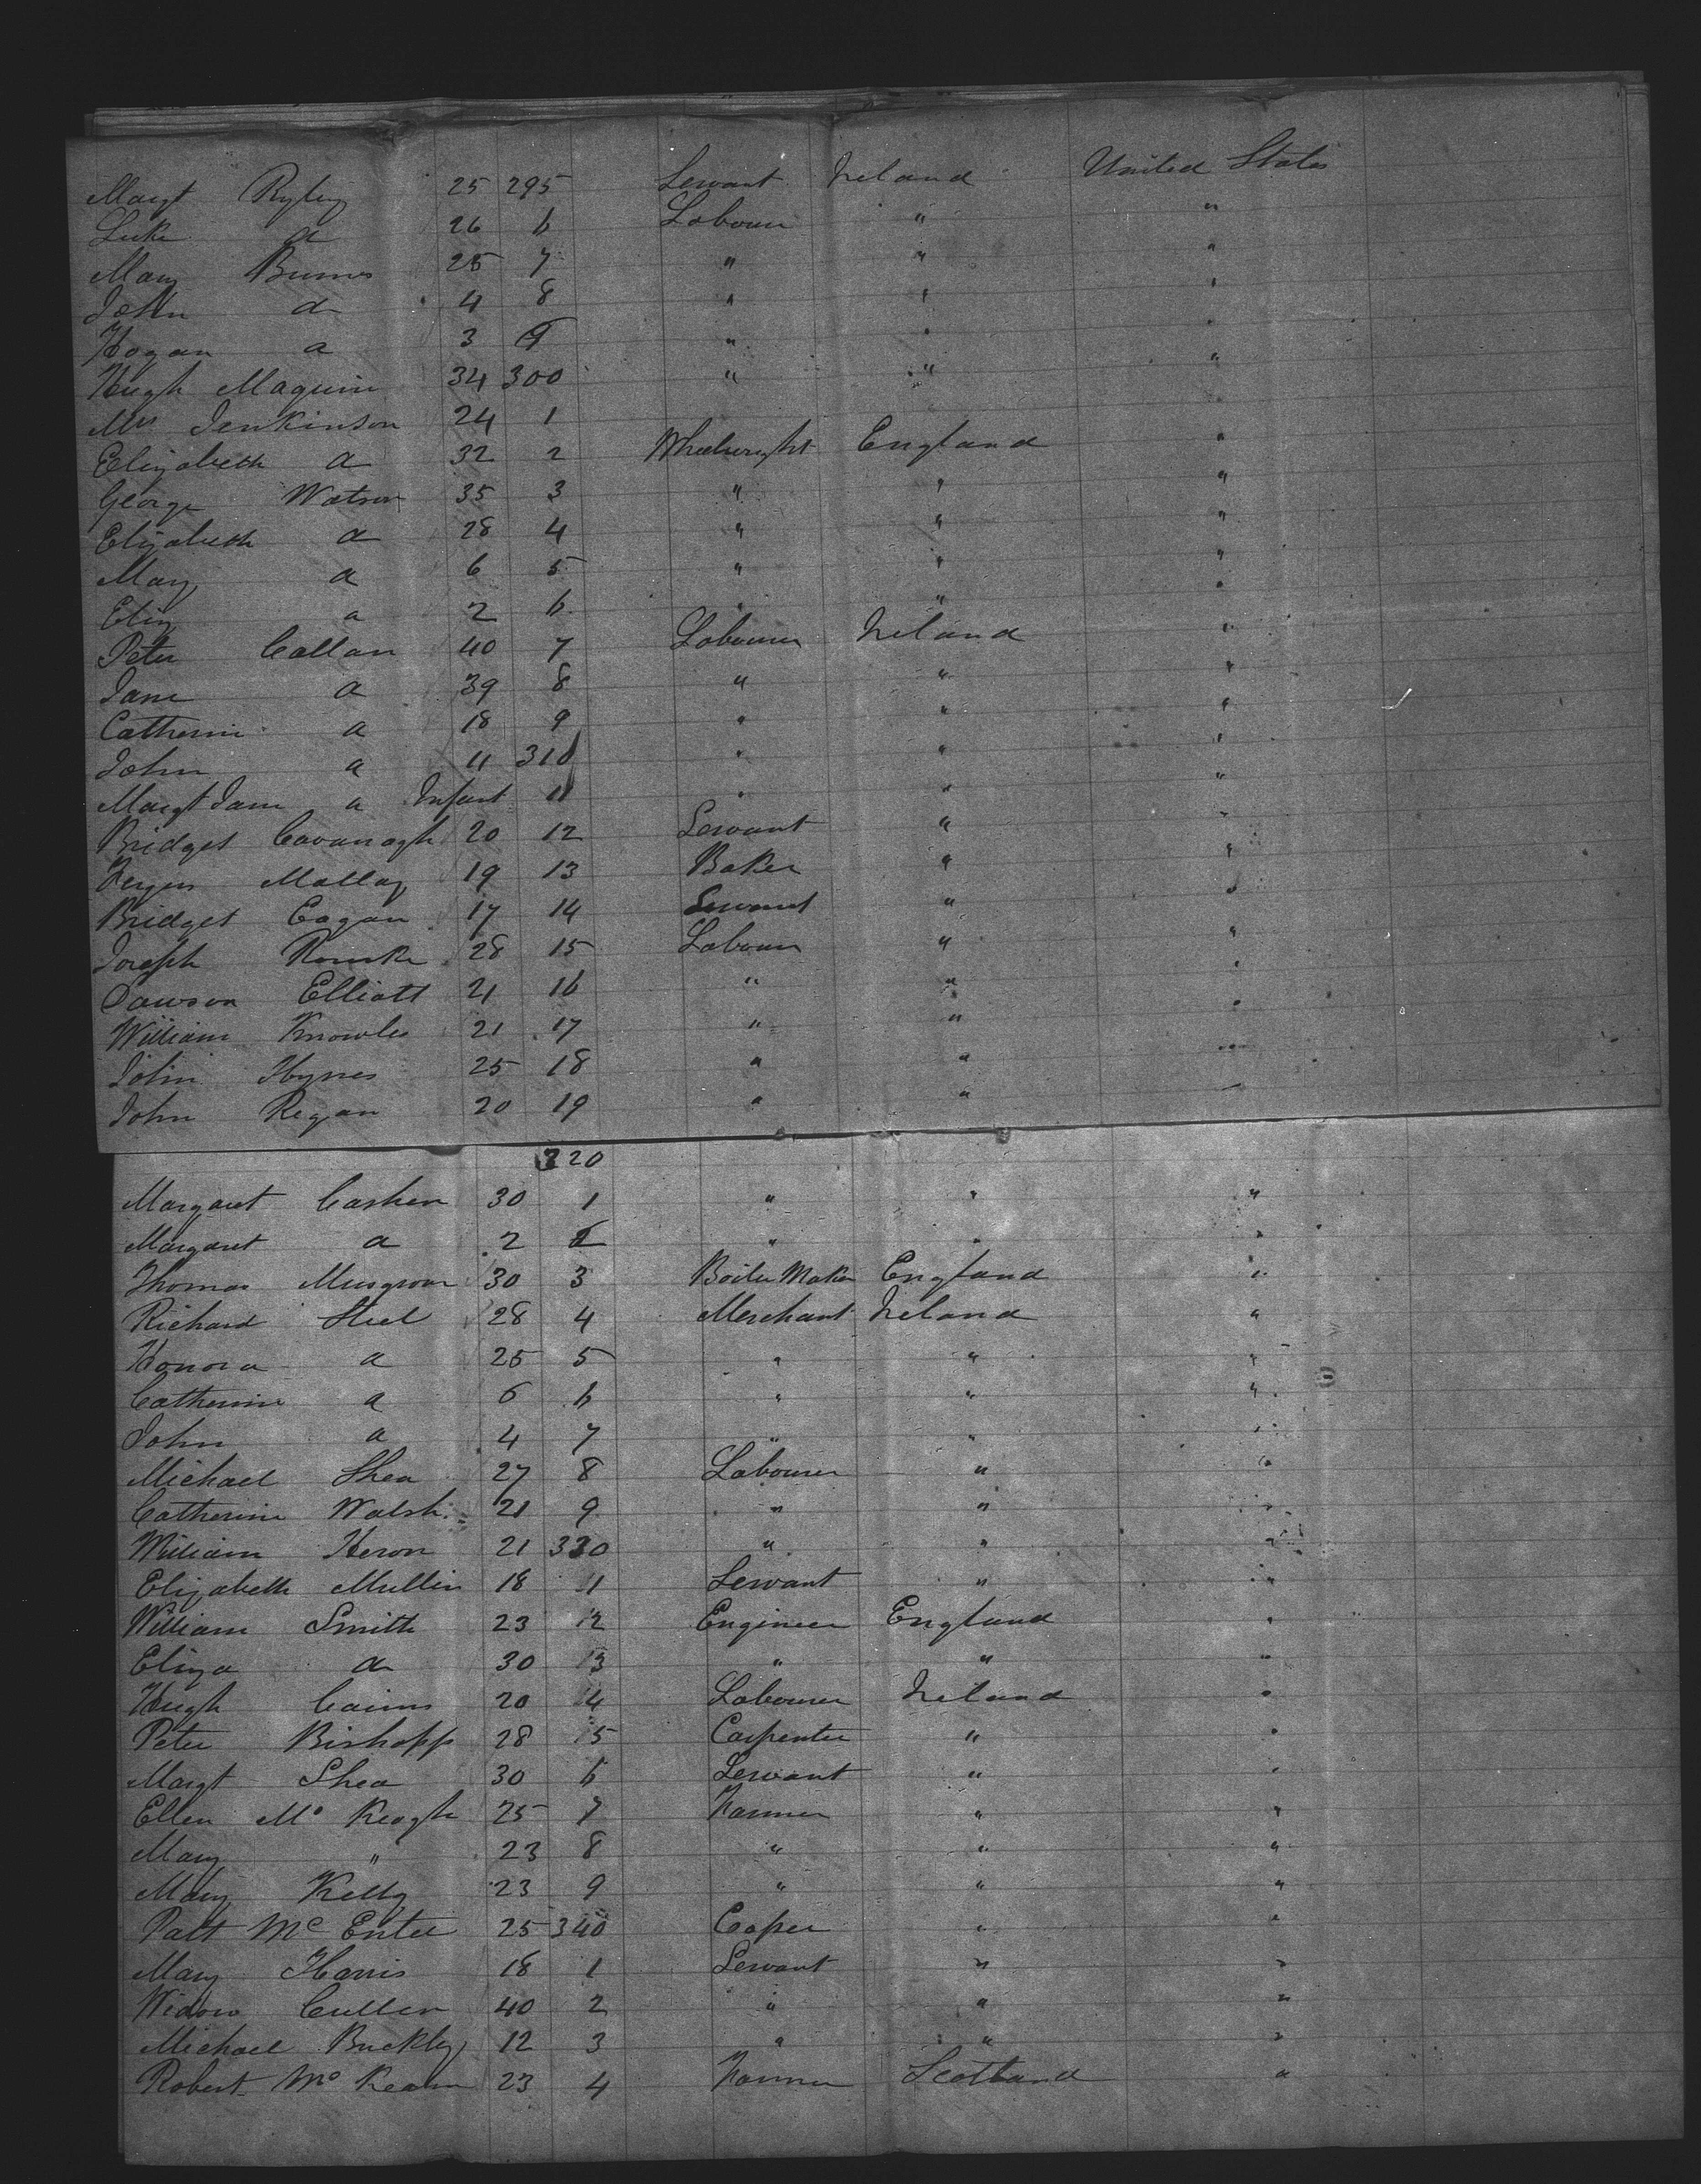 Margt Ryley 25 295 Servant Ireland United States
Luke a 26 6 Labourer " "
Mary Burnes 25 7 " " "
John a 4 8 " " "
Hogan a 3 9 " " "
Hugh Maguire 34 300 " " "
Mrs Jenkinson 24 1
Elizabeth a 32 2 Wheelwright England "
George Watson 35 3 " " "
Elizabeth a 28 4 " " "
Mary a 6 5 " " "
Eliz a 2 6 " " "
Peter Callan 40 7 Labourer Ireland "
Jane a 39 8 " " "
Catherine a 18 9 " " "
John a 11 310 " " "
Margt Jane a Infant 11 " " "
Bridget Cavanagh 20 12 Servant " "
Mallay 19 13 Baker " "
Bridget Eagan 17 14 Servant " "
Joseph Rourke 28 15 Labourer " "
Dawson Elliott 21 16 " " "
William Knowles 21 17 " " "
John Hynes 25 18 " " "
John Regan 20 19 " " "
320
Margaret Cashen 30 1 " " "
Margaret a 2 2 " " "
Thomas Musgrove 30 3 Boiler Maker England "
Richard Steel 28 4 Merchant Ireland "
Honora a 25 5 " " "
Catherine a 6 6 " " "
John a 4 7 " " "
Michael Shea 27 8 Labourer " "
Catherine Walsh 21 9 " " "
William Heron 21 330 " " "
Elizabeth Mullin 18 11 Servant " "
William Smith 23 12 Engineer England "
Eliza a 30 13 " " "
Hugh Cairns 20 14 Labourer Ireland "
Peter Bishopp 28 15 Carpenter " "
Margt Shea 30 6 Servant " "
Ellen Mc Keogh 25 7 Farmer " "
Mary " 23 8 " " "
Mary Kelly 23 9 " " "
Patt Mc Entee 25 340 Cooper " "
Mary Harris 18 1 Servant " "
Widow Cullen 40 2 " " "
Michael Buckley 12 3 " " "
Robert Mc 23 4 Farmer Scotland "